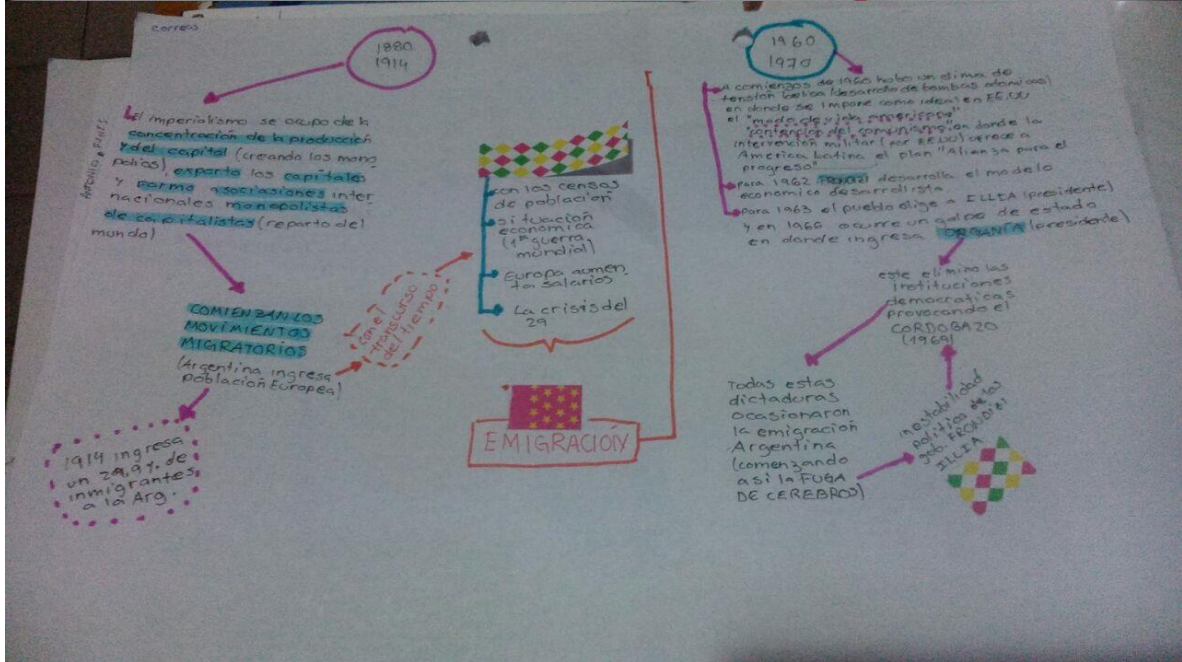 correas
Antonio, Flores
1880
1914
El imperialismo se ocupo de la
concentración de la producción
y del capital (creando los mono
polios), exporto los capitales
y formo asociasiones inter
nacionales monopolistas
de capitalistas (reparto del
mundo)
COMIENZAN LOS
MOVIMIENTOS
MIGRATORIOS
(Argentina ingresa
población Europea)
1914 ingresa
un 29,9% de
inmigrantes
a la Arg.
con el
transcurso
del tiempo
con los censos
de población
situación
económica
(1ª guerra
mundial)
Europa aumen
ta salarios
La crisis del
29
EMIGRACIÓN
1960
1970
A comienzos de 1960 hubo un clima de
tensión belica (desarrollo de bombas atomicas)
en donde se impone como ideal en EE.UU
el "modo de vida americano"
"contención del comunismo" en donde la
intervención militar (por EE.UU) ofrece a
America Latina el plan "Alianza para el
progreso"
Para 1962 FRONDIZI desarrolla el modelo
economico desarrollista
Para 1963 el pueblo elige a ILLIA (presidente)
y en 1966 ocurre un golpe de estado
en donde ingresa ONGANIA (presidente)
este elimino las
instituciones
democraticas
provocando el
CORDOBAZO
(1969)
Todas estas
dictaduras
ocasionaron
la emigración
Argentina
(comenzando
asi la FUGA
DE CEREBROS)
inestabilidad
politica de los
gob. FRONDIZI
ILLIA